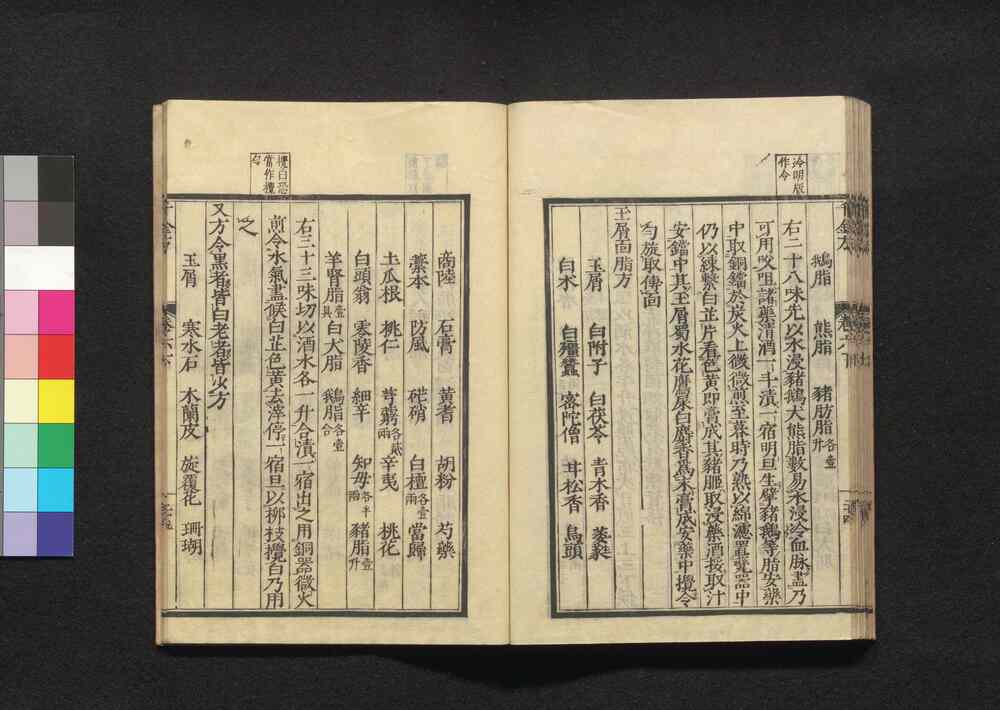 泠明版
作令
鵝脂 熊脂 豬肪脂各壹升
右二十八味先以水浸豬鵝犬熊脂數易水浸泠血脉盡乃
可用㕮咀諸藥清酒一斗漬一宿明旦生擘豬鵝等脂安藥
中取銅鐺於炭火上微微煎至暮時乃熟以綿濾置瓷器中
仍以練繫白芷片看色黃即膏成其豬脡取浸藥酒挼取汁
安鐺中其玉屑蜀水花鷹屎白麝香爲末膏成安藥中攪令
勻旋取傅面
玉屑面脂方
玉屑 白附子 白茯苓 青木香 萎蕤
白朮 白殭蠶 密陀僧 甘松香 烏頭
商陸 石膏 黃耆 胡粉 芍藥
藁本 防風 硭硝 白檀各壹兩 當歸
土瓜根 桃仁 芎藭各貳兩 辛夷 桃花
白頭翁 零陵香 細辛 知母各半兩 豬脂壹升
羊腎脂壹具 白犬脂 鵝脂各壹合
右三十三味切以酒水各一升合漬一宿出之用銅器微火
煎令水氣盡候白芷色黃去滓停一宿旦以柳技攪白乃用
之
又方令黑者皆白老者皆少方
玉屑 寒水石 木蘭皮 旋覆花 珊瑚
攪白恐
當作攪
勻